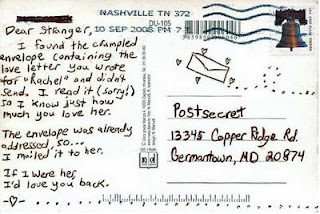 NASHVILLE TN 372
DU-105
10 SEP 2008 PM 7
Dear Stranger,
I found the crumpled
envelope containing the
love letter you wrote
for "Rachel" and didn't
send. I read it (sorry!)
so I know just how
much you love her.
The envelope was already
addressed, so...
I mailed it to her.
If I were her,
I'd love you back.
Postsecret
13345 Copper Ridge Rd.
Germantown, MD 20874